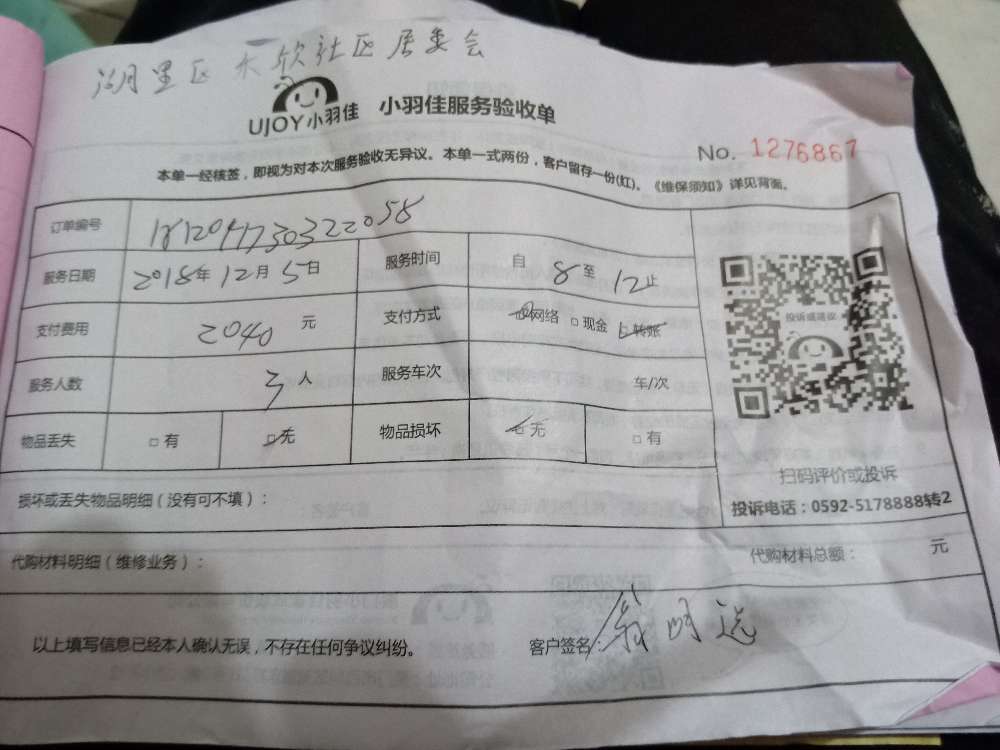 湖里区永欣社区居委会
UJOY小羽佳 小羽佳服务验收单
No. 1276867
本单一经核签，即视为对本次服务验收无异议。本单一式两份，客户留存一份(红)。《维保须知》详见背面。
订单编号 181204173032 2058
服务日期 2018年12月5日 服务时间 自 8 至 12 止
支付费用 2040 元 支付方式 □网络 □现金 □转账
服务人数 3 人 服务车次 车/次
物品丢失 □有 □无 物品损坏 □无 □有
投诉或建议
扫码评价或投诉
投诉电话：0592-5178888转2
损坏或丢失物品明细（没有可不填）：
代购材料明细（维修业务）： 代购材料总额： 元
以上填写信息已经本人确认无误，不存在任何争议纠纷。 客户签名：翁明远